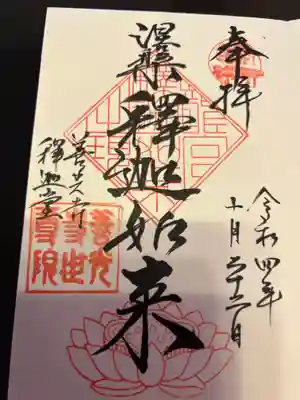 奉拝
令和四年
十月二十六日
涅槃釋迦如来
善光寺
釋迦堂
善光
寺世
尊院